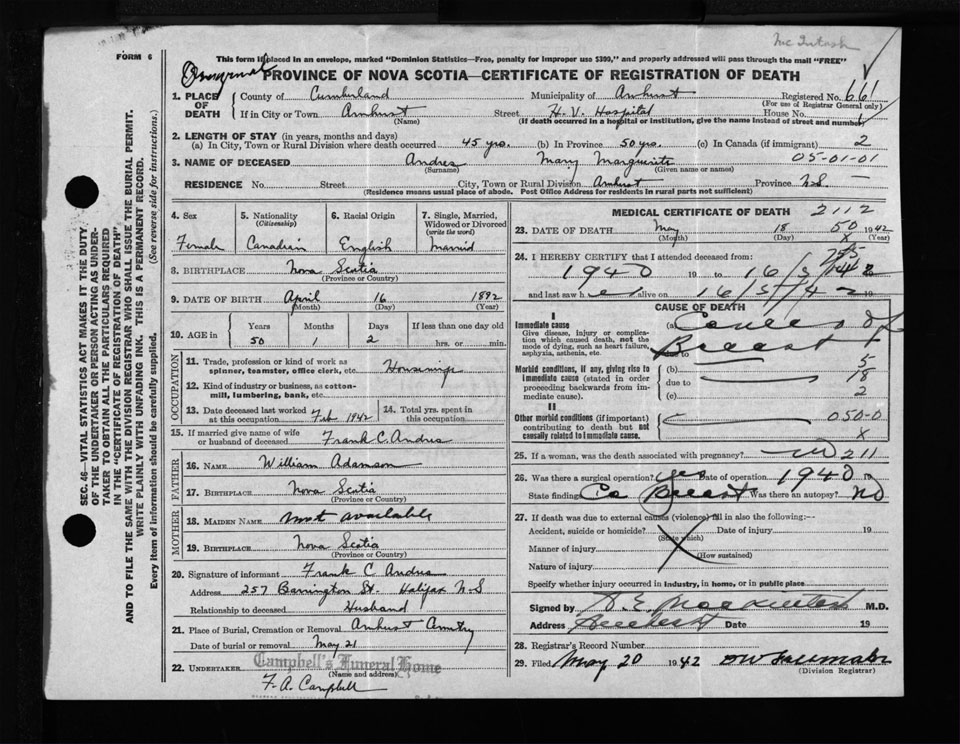 McIntosh
FORM 6
This form if placed in an envelope, marked "Dominion Statistics—Free, penalty for improper use $300," and properly addressed will pass through the mail "FREE"
Original
PROVINCE OF NOVA SCOTIA—CERTIFICATE OF REGISTRATION OF DEATH
1. PLACE OF DEATH County of Cumberland Municipality of Amherst Registered No. 661
(For use of Registrar General only)
If in City or Town Amherst Street H. V. Hospital House No.
(Name) (If death occurred in a hospital or institution, give the name instead of street and number)
2. LENGTH OF STAY (in years, months and days)
(a) In City, Town or Rural Division where death occurred 45 yrs. (b) In Province 50 yrs. (c) In Canada (if immigrant) 2
3. NAME OF DECEASED Andres Mary Marguerite 05-01-01
(Surname) (Given name or names)
RESIDENCE No. Street City, Town or Rural Division Amherst Province N.S.
(Residence means usual place of abode. Post Office Address for residents in rural parts not sufficient)
SEC. 46—VITAL STATISTICS ACT MAKES IT THE DUTY
OF THE UNDERTAKER OR PERSON ACTING AS UNDER-
TAKER TO OBTAIN ALL THE PARTICULARS REQUIRED
IN THE "CERTIFICATE OF REGISTRATION OF DEATH"
AND TO FILE THE SAME WITH THE DIVISION REGISTRAR WHO SHALL ISSUE THE BURIAL PERMIT.
WRITE PLAINLY WITH UNFADING INK. THIS IS A PERMANENT RECORD.
Every item of information should be carefully supplied. (See reverse side for instructions.)
4. Sex Female
5. Nationality (Citizenship) Canadian
6. Racial Origin English
7. Single, Married, Widowed or Divorced (write the word) Married
8. BIRTHPLACE Nova Scotia
(Province or Country)
9. DATE OF BIRTH April 16 1892
(Month) (Day) (Year)
10. AGE in Years Months Days If less than one day old
50 1 2 hrs. or min.
OCCUPATION
11. Trade, profession or kind of work as spinner, teamster, office clerk, etc. Housewife
12. Kind of industry or business, as cotton-mill, lumbering, bank, etc.
13. Date deceased last worked at this occupation Feb 1942
14. Total yrs. spent in this occupation
15. If married give name of wife or husband of deceased Frank C. Andres
FATHER
16. NAME William Adamson
17. BIRTHPLACE Nova Scotia
(Province or Country)
MOTHER
18. MAIDEN NAME not available
19. BIRTHPLACE Nova Scotia
(Province or Country)
20. Signature of informant Frank C Andres
Address 257 Barrington St. Halifax N-S
Relationship to deceased Husband
21. Place of Burial, Cremation or Removal Amherst
Date of burial or removal May 21
22. UNDERTAKER Campbell's Funeral Home
(Name and address)
F. A. Campbell
MEDICAL CERTIFICATE OF DEATH 2112
23. DATE OF DEATH May 18 50 1942
(Month) (Day) X (Year)
24. I HEREBY CERTIFY that I attended deceased from:
1940 19 to 16/5/42
and last saw her alive on 16/5/42 19
CAUSE OF DEATH
I
Immediate cause
Give disease, injury or complication which caused death, not the mode of dying, such as heart failure, asphyxia, asthenia, etc.
(a) Cancer of
Breast
due to
Morbid conditions, if any, giving rise to immediate cause (stated in order proceeding backwards from immediate cause).
(b) 5
due to 18
(c) 2
II
Other morbid conditions (if important) contributing to death but not causally related to immediate cause.
050-0
X
25. If a woman, was the death associated with pregnancy? 211
26. Was there a surgical operation? Yes Date of operation 1940
State finding Ca Breast Was there an autopsy? No
27. If death was due to external causes (violence) fill in also the following:—
Accident, suicide or homicide? Date of injury 19
(State which)
Manner of injury
(How sustained)
Nature of injury
Specify whether injury occurred in industry, in home, or in public place
Signed by M.D.
Address Amherst Date 19
28. Registrar's Record Number
29. Filed May 20 1942
(Division Registrar)